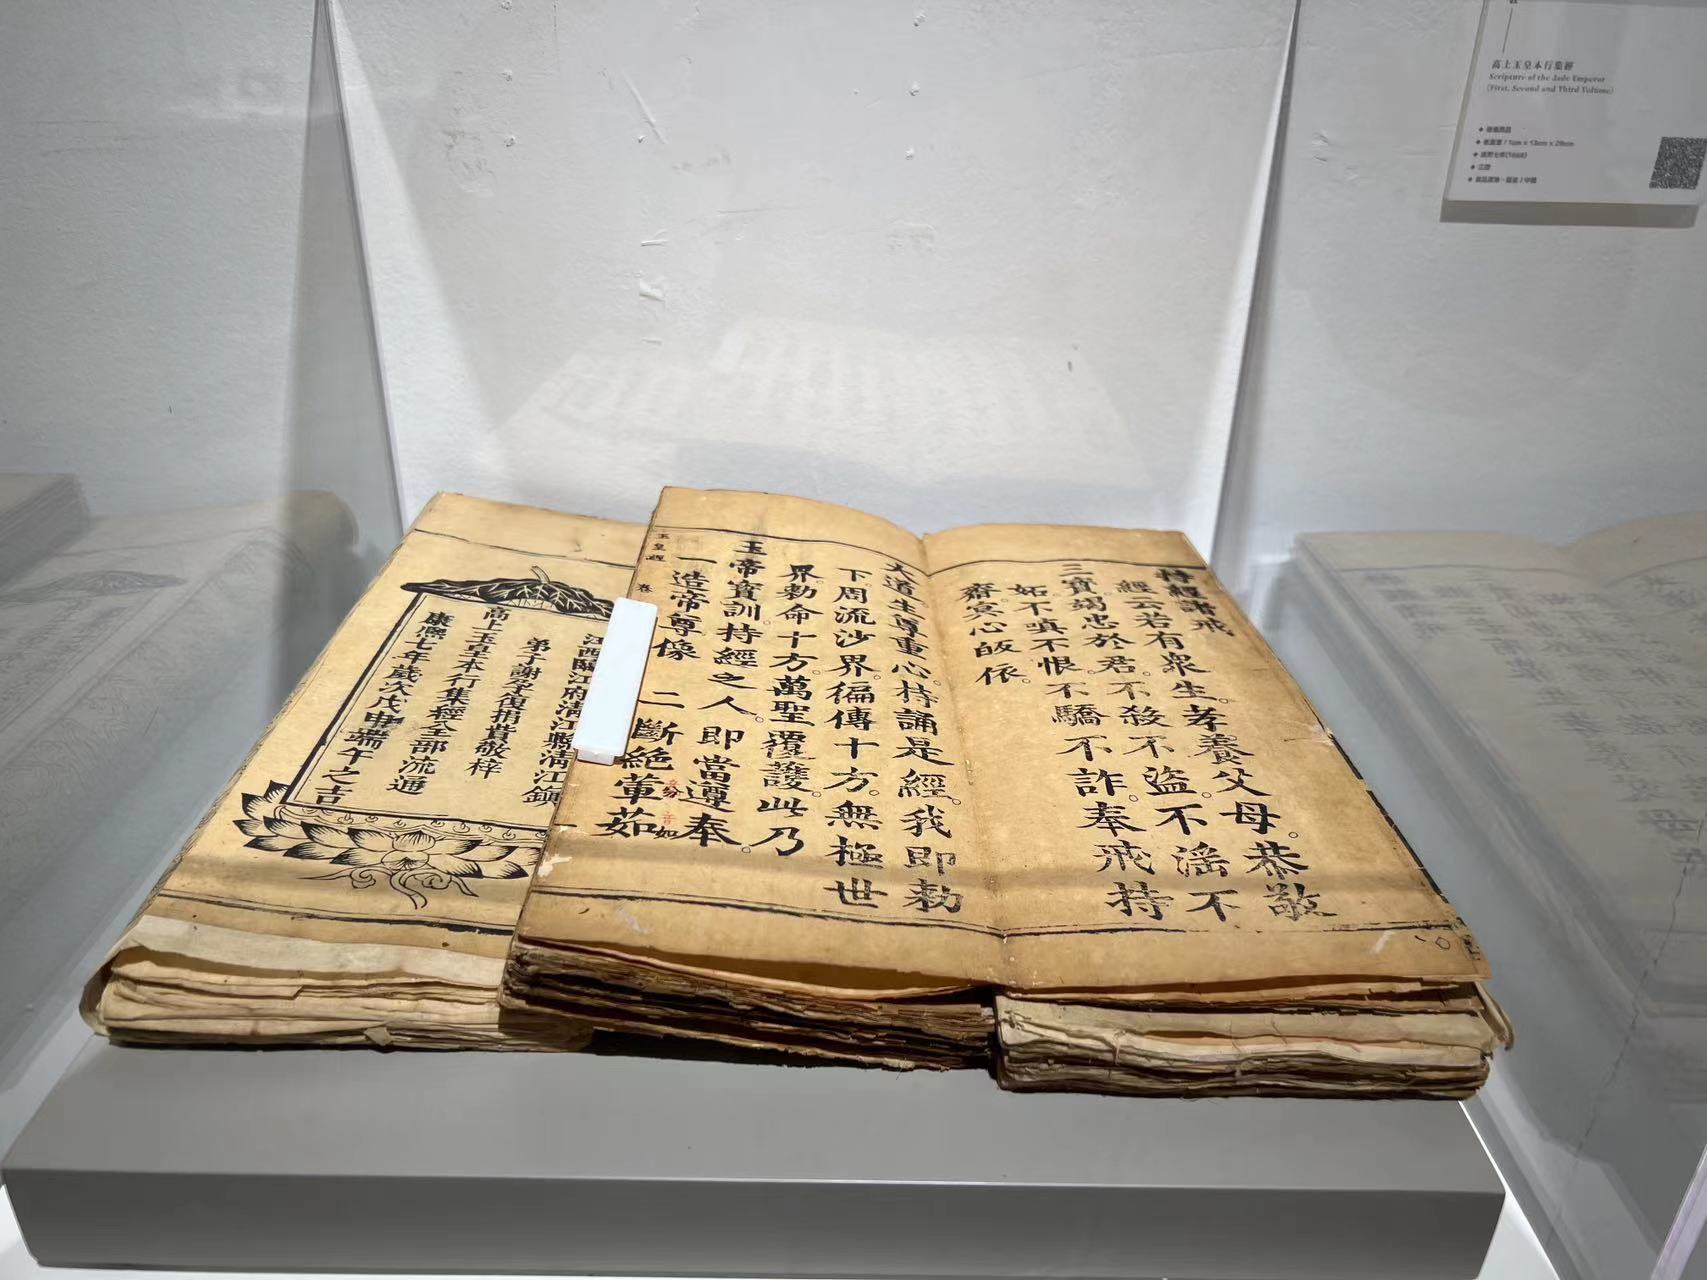 持經諸戒
經云若有衆生孝養父母恭敬
三寶竭忠於君不殺不盜不淫不
妬不嗔不恨不驕不詐奉戒持
齋冥心皈依
大道生尊重心持誦是經我即勅
下周流沙界徧傳十方無極世
界勅命十方萬聖覆護此乃
玉帝寶訓持經之人即當遵奉
一造帝尊像 二斷絕葷茹
音如
玉皇經 卷
江西臨江府清江縣清江鎮
弟子謝
復捐貲敬梓
高上玉皇本行集經全部流通
康熈七年歲次戊申端午之吉
高上玉皇本行集經
Scripture of the Jade Emperor
(First, Second and Third Volume)
康熙七年(1668)